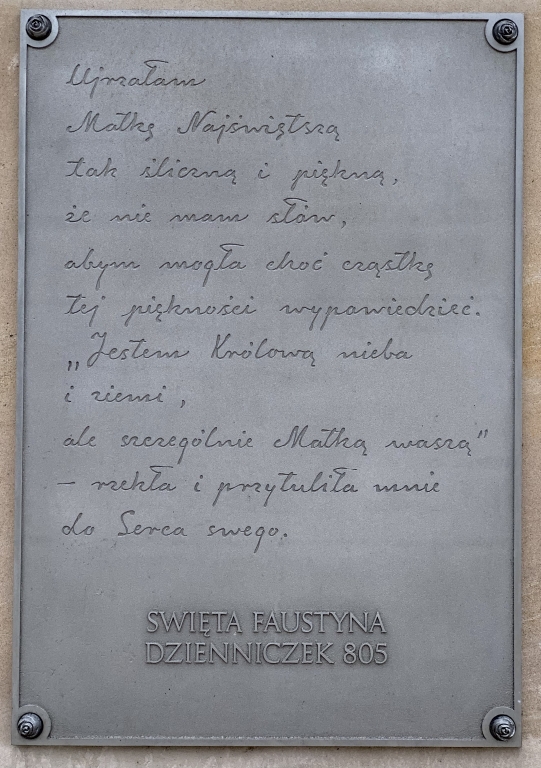 Ujrzałam
Matkę Najświętszą
tak śliczną i piękną,
że nie mam słów,
abym mogła choć cząstkę
tej piękności wypowiedzieć.
„Jestem Królową nieba
i ziemi,
ale szczególnie Matką waszą"
– rzekła i przytuliła mnie
do Serca swego.
SWIĘTA FAUSTYNA
DZIENNICZEK 805